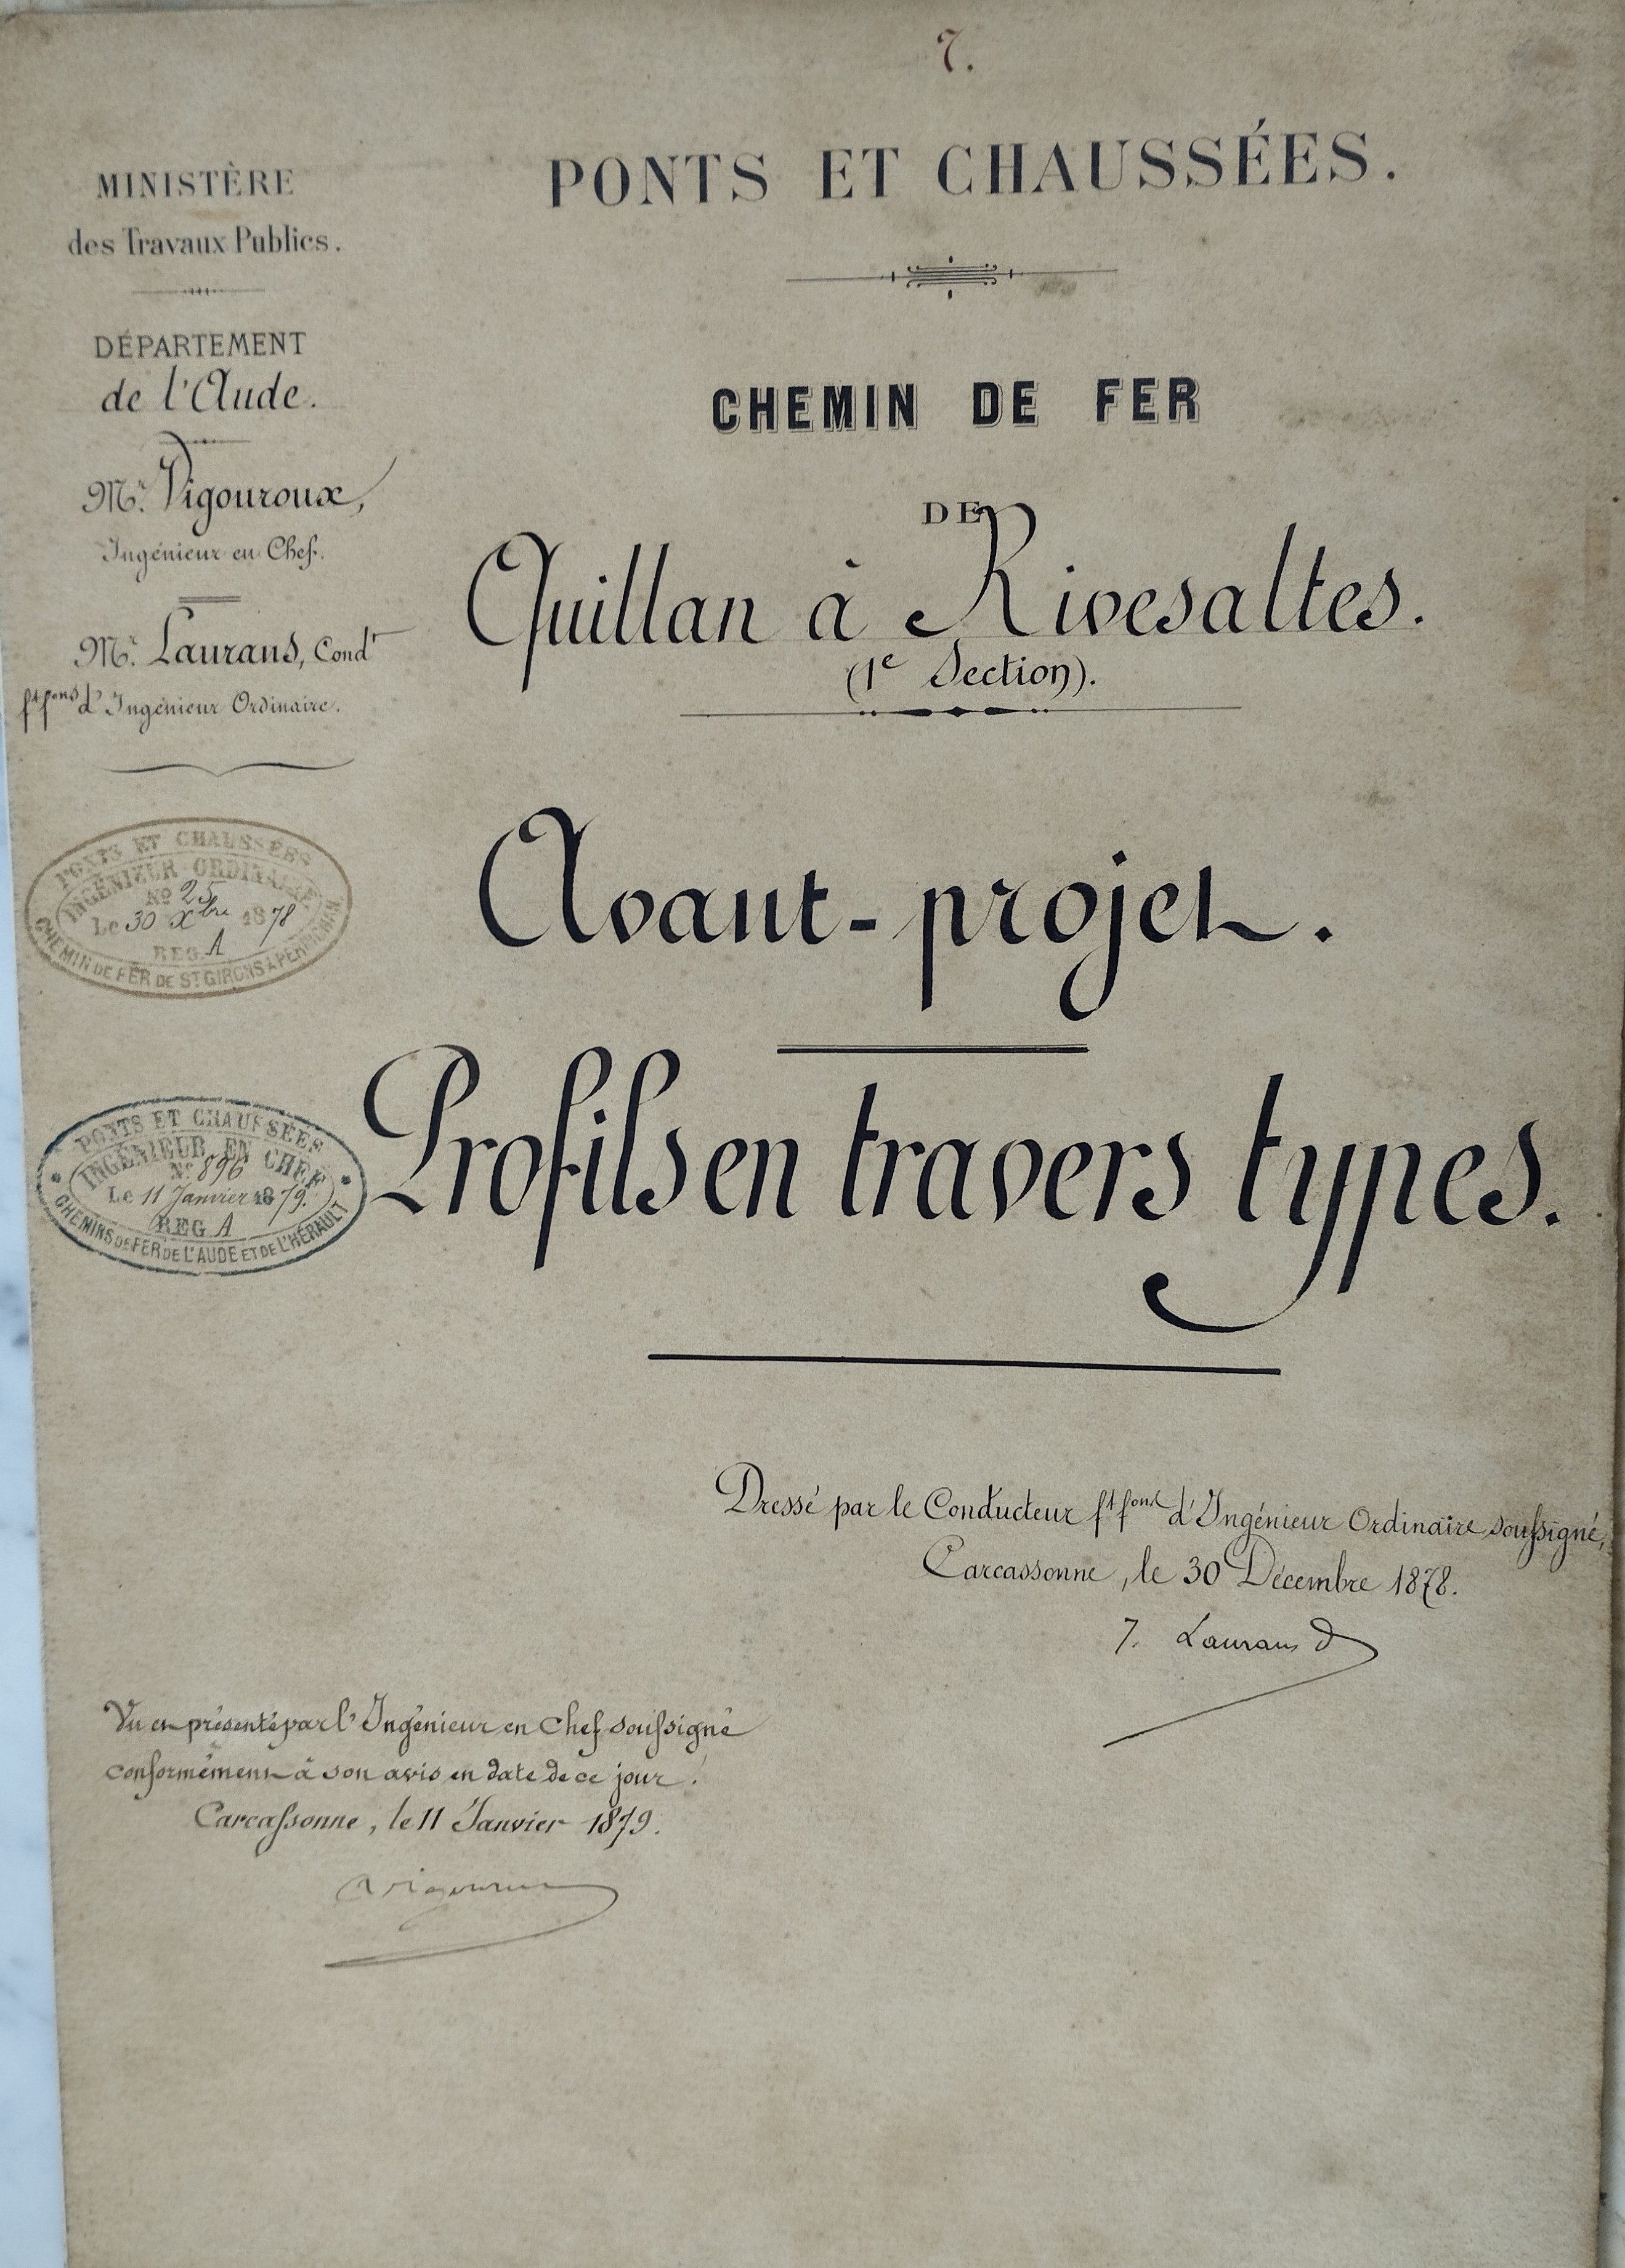 7.
MINISTÈRE
des Travaux Publics.
DÉPARTEMENT
de l'Aude.
Mr. Vigouroux,
Ingénieur en Chef.
Mr. Laurans, Condt
ft fons d'Ingénieur Ordinaire.
PONTS ET CHAUSSÉES
INGÉNIEUR ORDINAIRE
No 25
Le 30 Xbre 1878
REG A
CHEMIN DE FER DE ST GIRONS À PERPIGNAN
PONTS ET CHAUSSÉES
INGÉNIEUR EN CHEF
No 896
Le 11 Janvier 1879.
REG A
CHEMINS DE FER DE L'AUDE ET DE L'HÉRAULT
PONTS ET CHAUSSÉES.
CHEMIN DE FER
DE
Quillan à Rivesaltes.
(1e Section).
Avant-projet.
Profils en travers types.
Dressé par le Conducteur ft fons d'Ingénieur Ordinaire soussigné,
Carcassonne, le 30 Décembre 1878.
Laurans
Vu et présenté par l'Ingénieur en Chef soussigné
conformément à son avis en date de ce jour.
Carcassonne, le 11 Janvier 1879.
Vigouroux